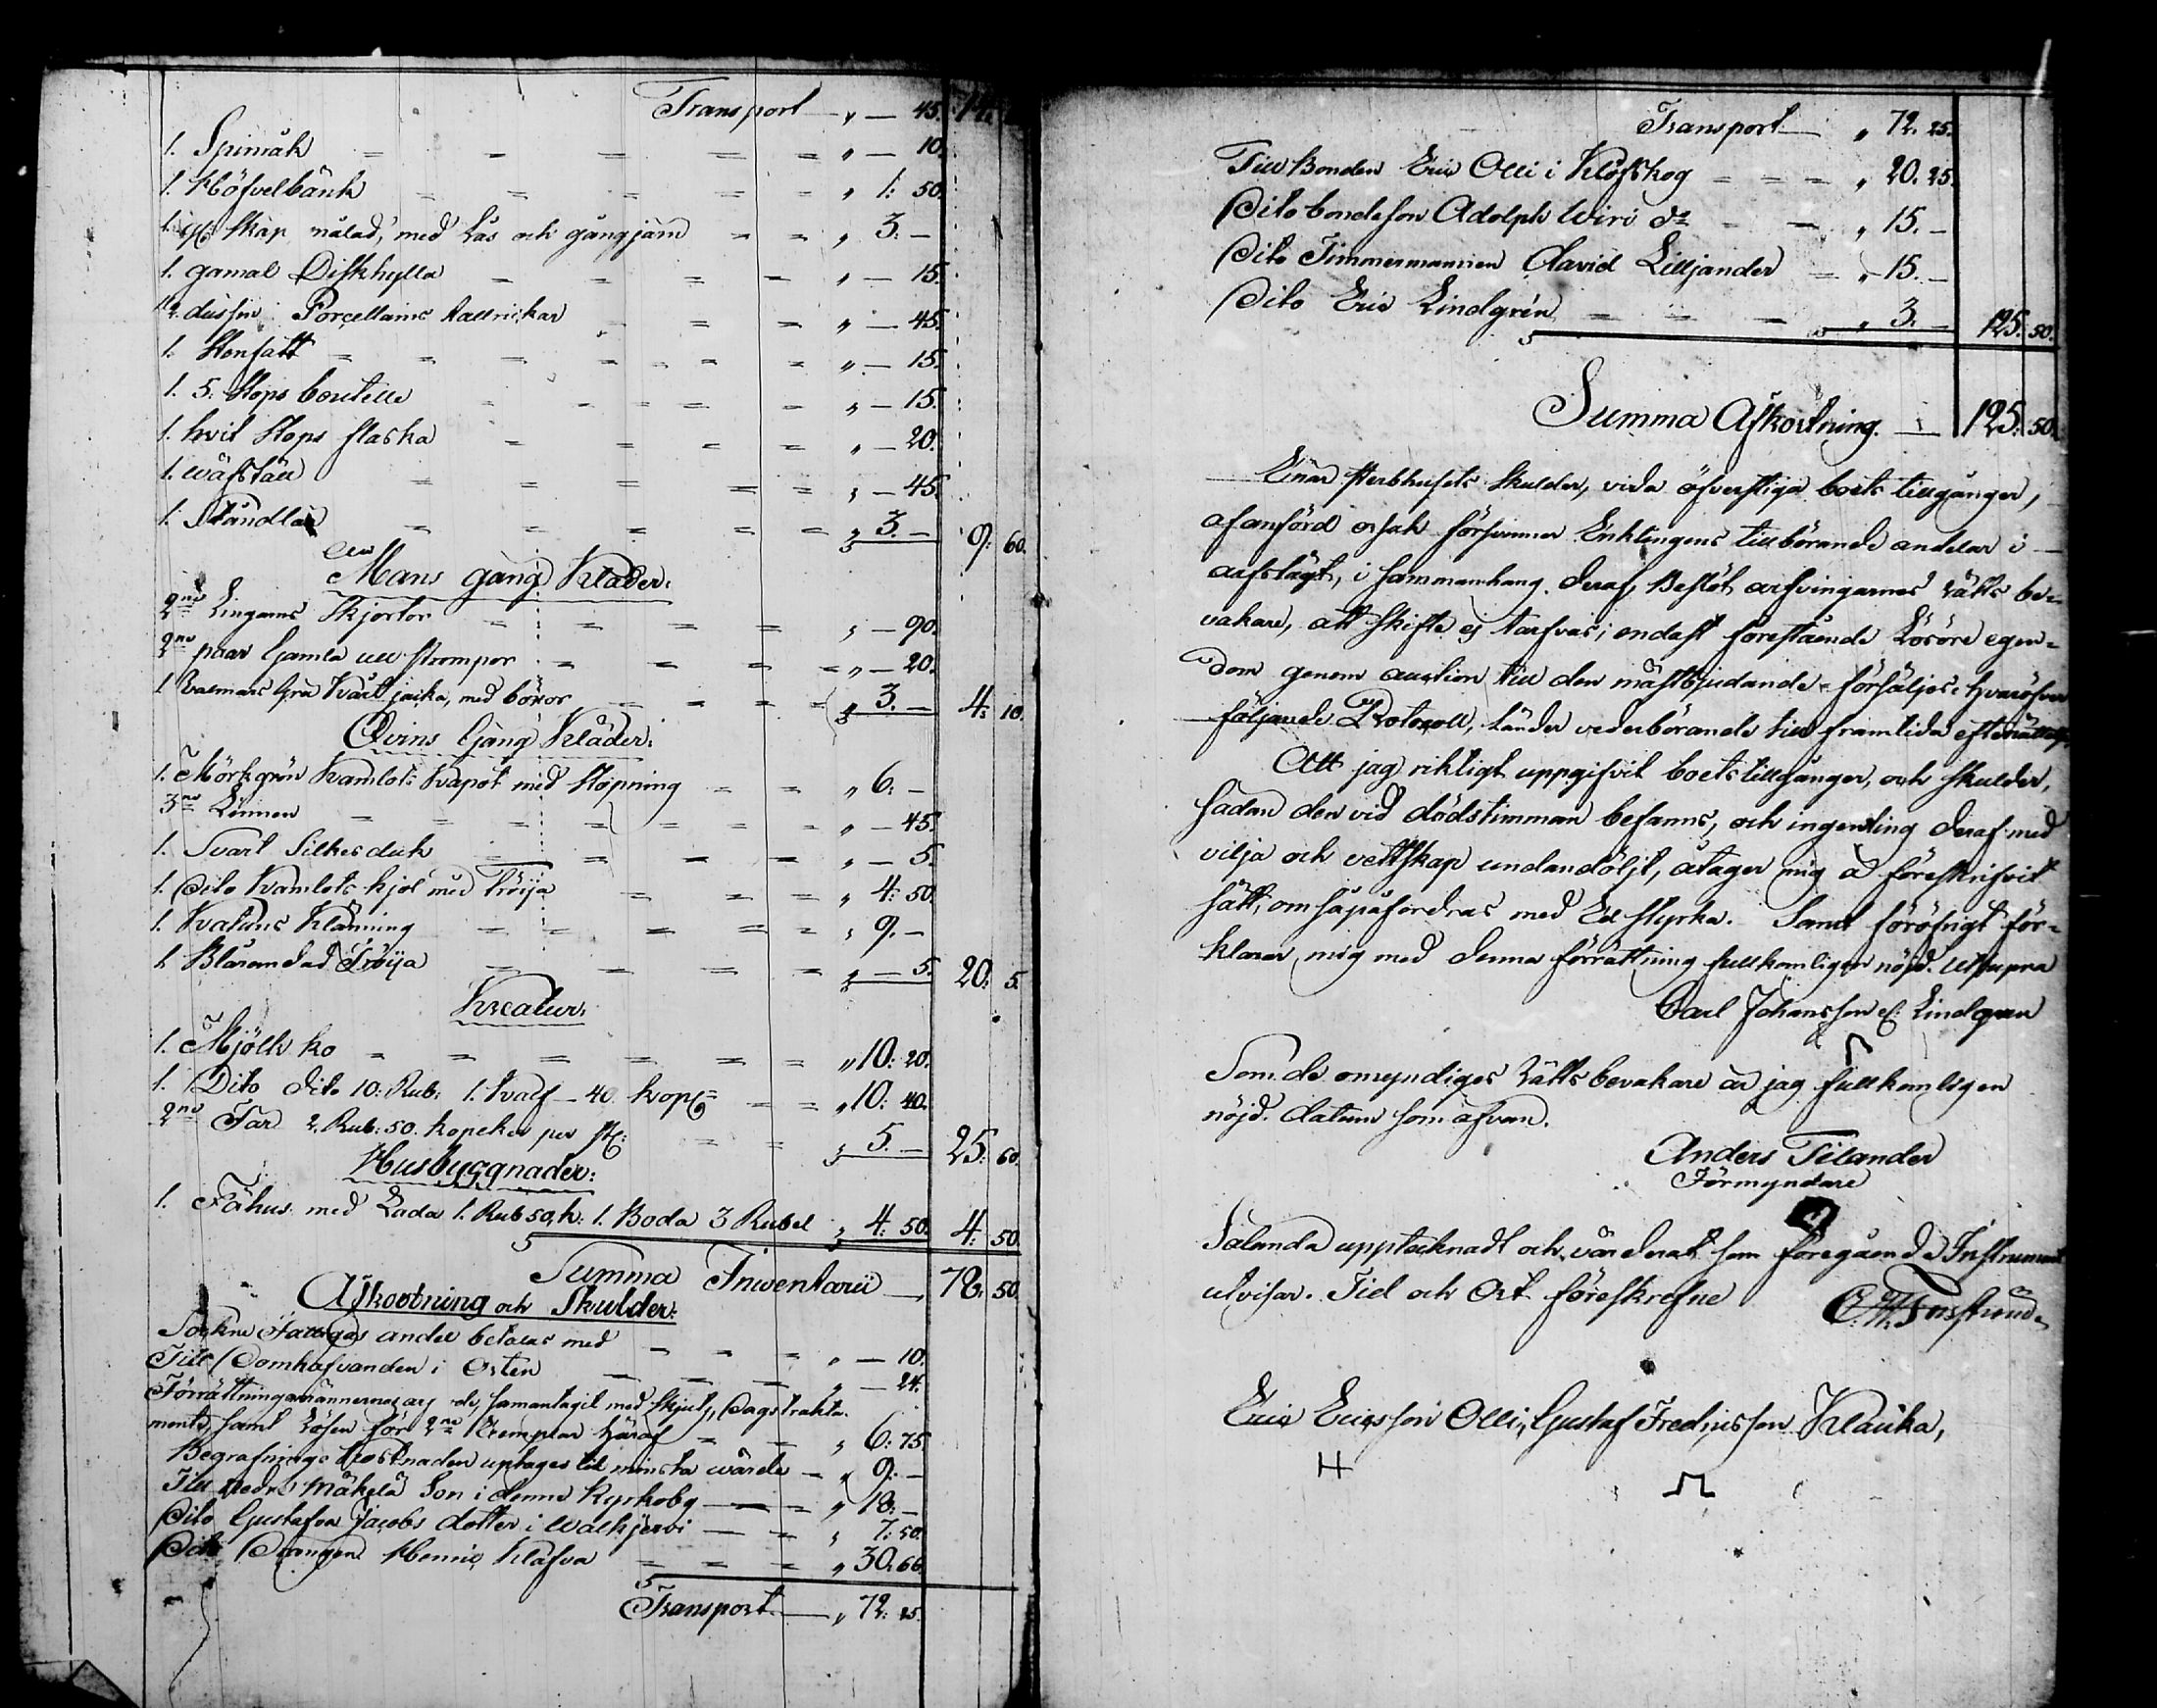 Transport — „ — 45. 14.
1. Spinråk „ — 10.
1. Höfvelbänk „ 1: 50.
1. Skåp målad, med Lås och gångjärn „ 3. —
1. gamal Diskhylla „ — 15.
1/2 dussin Porcellains tallrickar „ — 45.
1. Stenfatt „ — 15.
1. 5. Stops bouteille „ — 15.
1. hvit Stops flaska „ — 20.
1. wäfståll „ — 45.
1. Slåndlår „ 3. — 9: 60.
Mans gång Kläder:
2ne Lingarns Skjortor „ — 90.
2ne paar Gamla ull strompor „ — 20.
1 Valmars Grå kårt jacka, med böxor „ 3. — 4: 10.
Qvins Gång Kläder:
1. Mörkgrön Kamlots Kapot med stopning „ 6. —
3ne Linnen „ — 45.
1. Svart Silkesduk „ — 5.
1. Dito Kamlots kjol med Tröija „ 4: 50.
1. Kattuns Klänning „ 9. —
1. Blårandad Tröija „ — 5. 20: 5.
Kreatur:
1. Mjölk ko „ 10: 20.
1. Dito dito 10: Rub: 1. kalf — 40. kop „ 10: 40.
2ne Får 2. Rub: 50. kopeker per st: „ 5. — 25: 60.
Husbyggnader:
1. Fähus med Lada 1. Rub 50 k: 1. Boda 3 Rubel „ 4: 50. 4: 50.
Summa Inventarii — 78. 50.
Afkortning och Skulder:
Sockne Fattigas andel betalas med „ — 10.
Till Domhafvanden i Orten „ — 24.
Förrättningsmännernas arvode, samantagit med Skjuts, Dagstrakta-
mente, samt Lösen för 2ne Exemplar häraf „ 6: 75
Begrafnings kostnaden uptages till minsta wärde — „ 9: —
Till Mäkelä Son i denne Kyrkoby — „ 18: —
Dito Gustafva Jacobs dotter i Walkjervi — „ 7: 50.
Dito Drengen Henric Klåfva „ 30. 66
Transport — „ 72: 25.
Transport — „ 72. 25.
Till Bonden Eric Olli i Klåfskog „ 20. 25.
Dito bondeson Adolph Wiri do „ 15. —
Dito Timmermannen David Lilljander „ 15. —
Dito Eric Lindgrén „ 3. — 125. 50.
Summa Afkortning. — 125. 50.
Enär sterbhusets skulder, vida öfverstiga boets tillgånger,
af anförd orsak försvinner Enklingens tillbörande andelar i
arfslägt, i sammanhang deraf, Beslöt arfvingarnes rätts be-
vakare, att skifte ej tarfvas; endast förestående Lösöre egen-
dom genom auction till den mästbjudande försäljes: hvaröfver
följande Protocoll, länder vederbörande till framtida efterrättelse
Att jag riktigt uppgifvit boets tillgånger, och skulder,
sadan den vid dödstimman befanns, och ingenting deraf med
vilja och vettskap undandöljt, åtager mig å föreskrifvit
sätt, om så påfordras med Ed styrka. Samt föröfrigt för-
klarar mig med denna förrättning fullkomligen nöjd. Ut supra
Carl Johansson Lindgren
Som de omyndiges rätts bevakare är jag fullkomligen
nöjd. datum som ofvan.
Anders Tilander
Förmyndare
Salunda upptecknadt och värderat som föregående Instrument
utvisar. Tid och Ort föreskrefne
Eric Ericsson Olli, Gustaf Fredricsson Klauka,